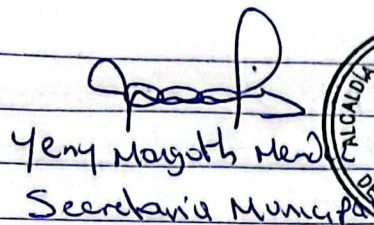 Yeny Margoth
Secretaria Municipal
ALCALDÍA